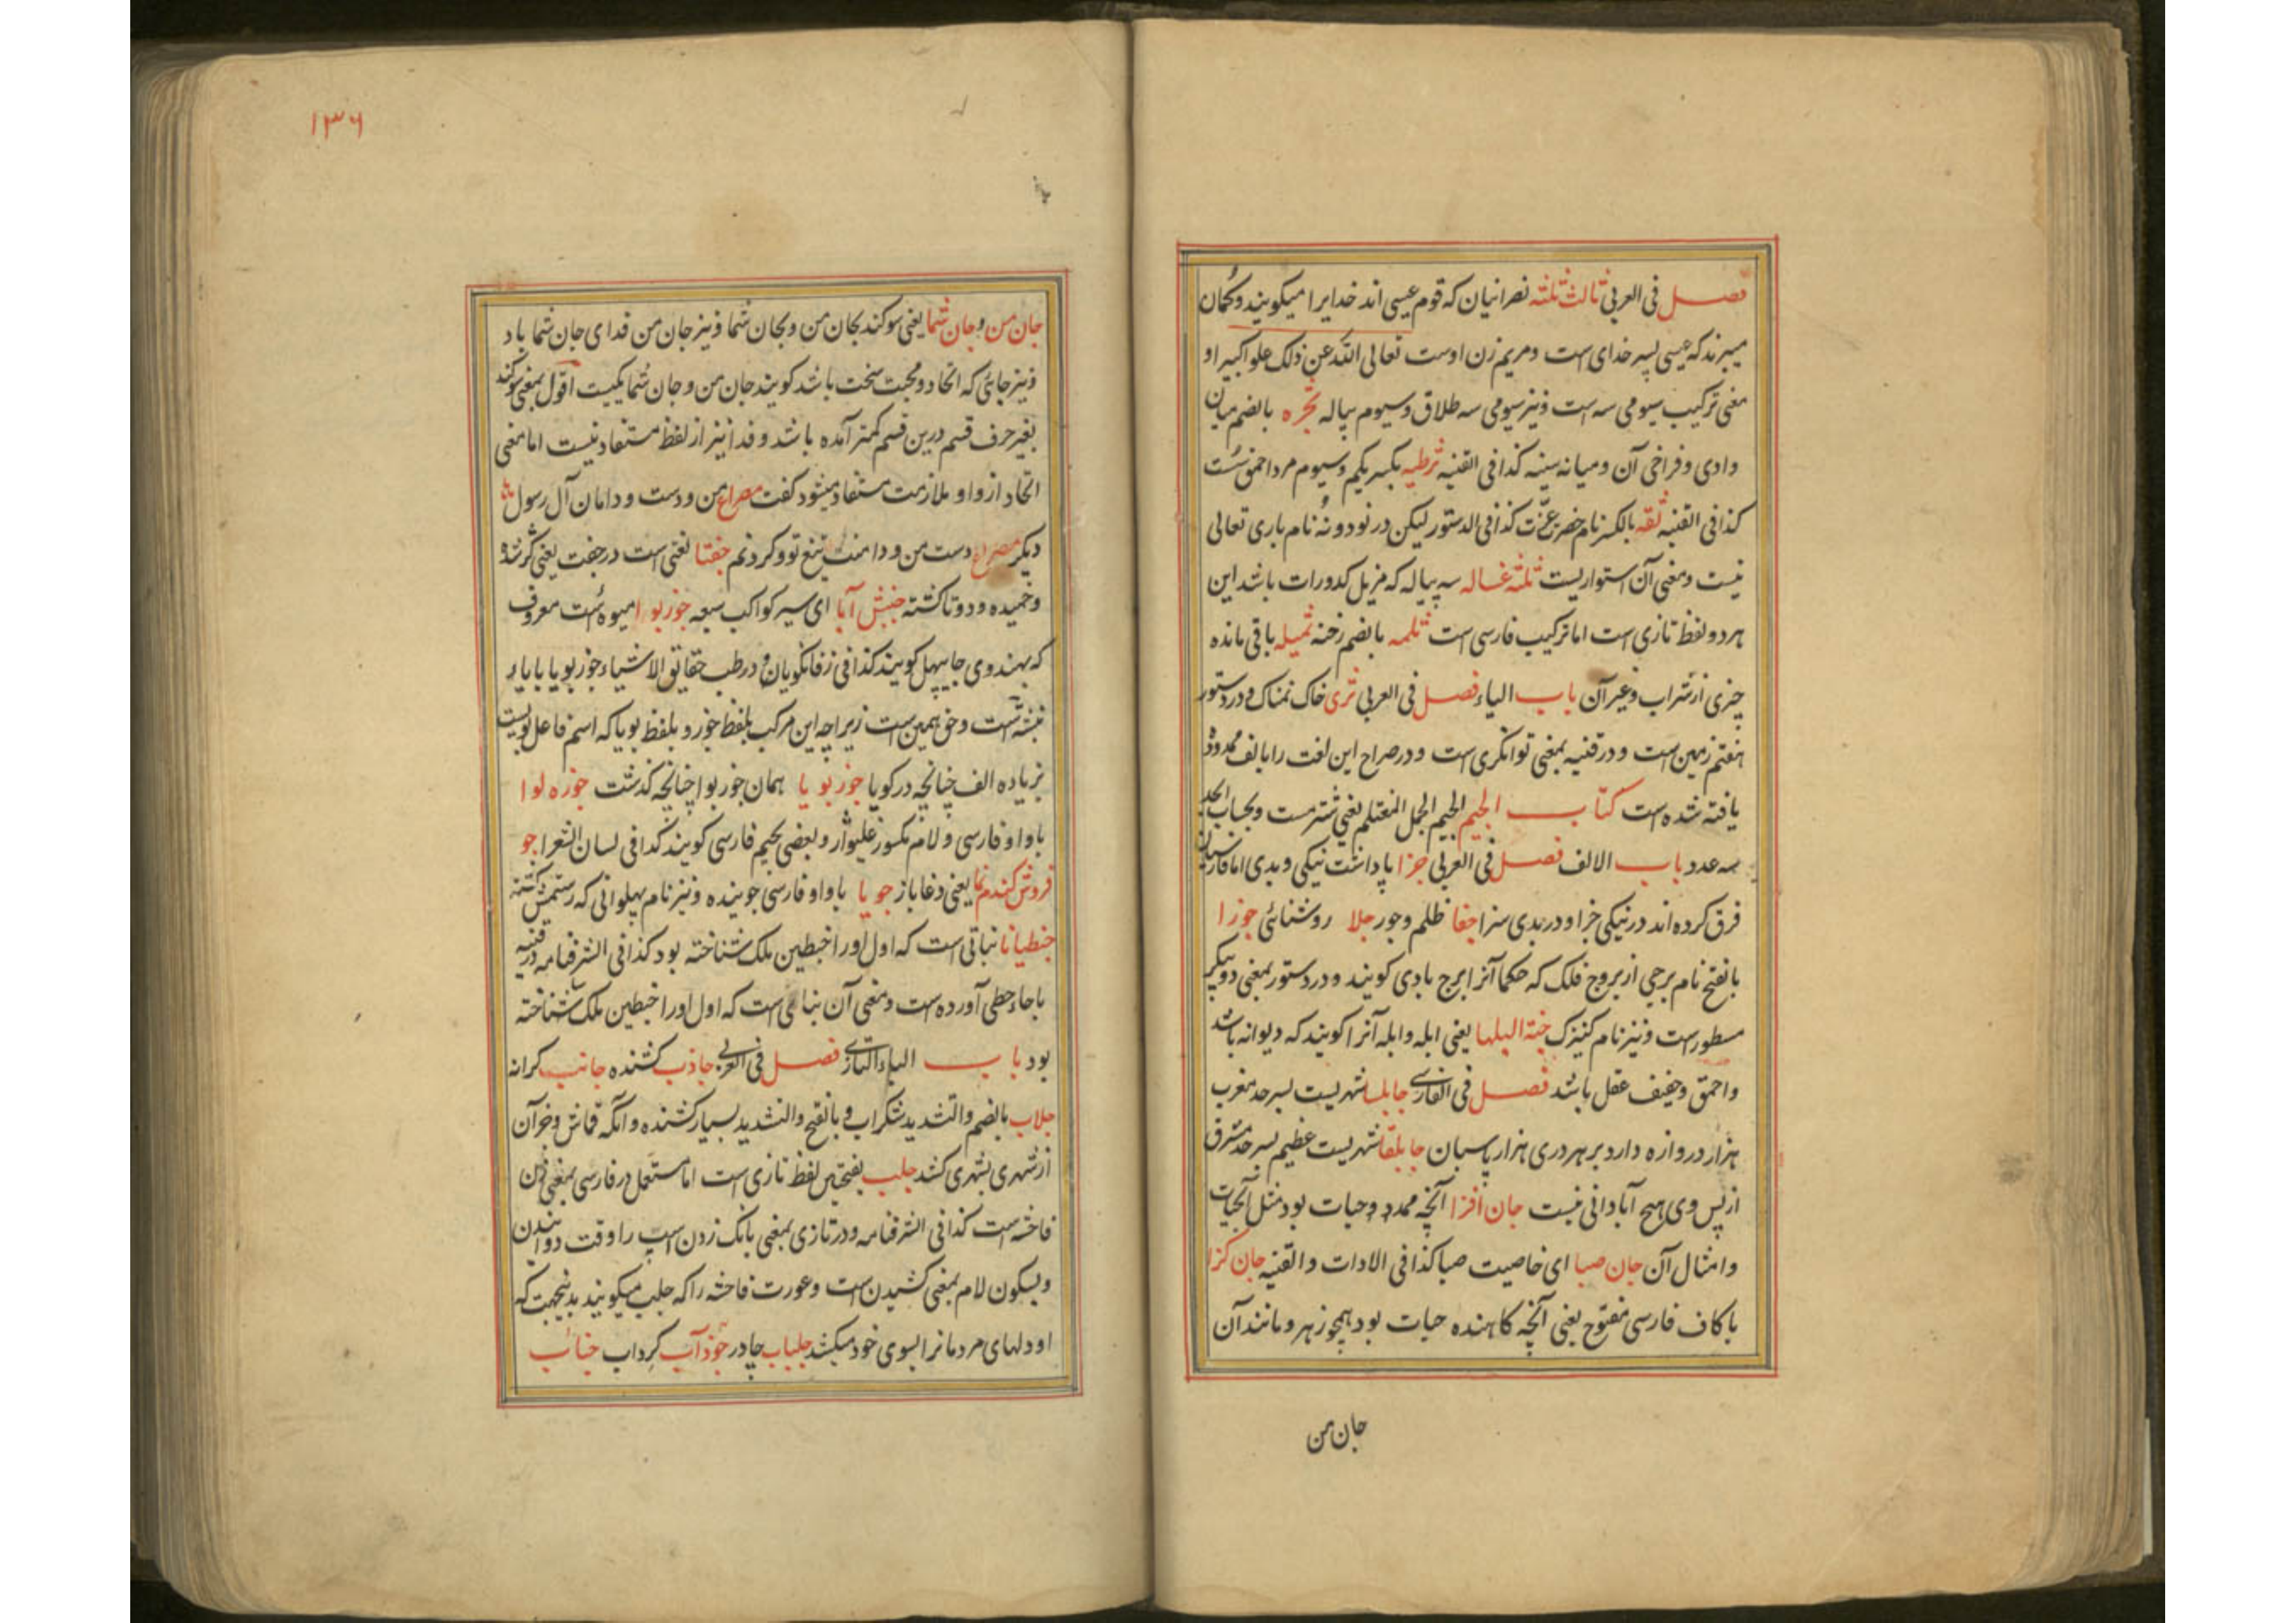 فصل فی العربی ثالث ثلثه نصرانیان که قوم عیسی اند خدایرا میکویند و کمان
میبرند که عیسی پسر خدای است و مریم زن اوست تعالی الله عن ذلک علوا کبیرا و
معنی ترکیب سیومی سه است و نیز سیومی سه طلاق و سیوم پیاله ثجره بالضم میان
وادی و فراخی آن و میانه سینه کذا فی القنیه ثرطیه بکسر یکم و سیوم مرد احمق سست
کذا فی القنیه ثقه بالکسر نام حضرت عزت کذا فی الدستور لیکن در نود و نه نام باری تعالی
نیست و معنی آن استواریست ثلثه غساله سه پیاله که مزیل کدورات باشد این
هر دو لفظ تازی است اما ترکیب فارسی است ثلمه بالضم رخنه ثمیله باقی مانده
چیزی از شراب و غیر آن باب الیاء فصل فی العربی ثری خاک نمناک و در دستور
هفتم زمین است و در قنیه بمعنی توانکری است و در صراح این لغت را با الف ممدوده
یافته نشده است کتاب الجیم الجیم الجمل المغتلم یعنی شتر مست و بحساب ابجد
سه عدد باب الالف فصل فی العربی جزا پاداشت نیکی و بدی اما فارسیان
فرق کرده اند در نیکی جزا و در بدی سزا جفا ظلم و جور جلا روشنائی جوزا
بالفتح نام برجی از بروج فلک که حکما آنرا برج بادی کویند و در دستور بمعنی دو پیکر
مسطور است و نیز نام کنیزک جنة البلها یعنی ابله و ابله آنرا کویند که دیوانه باشد
و احمق و خفیف عقل باشد فصل فی الفارسی جابلسا شهریست بسرحد مغرب
هزار دروازه دارد بر هر دری هزار پاسبان جابلقا شهریست عظیم بسرحد مشرق
از پس وی هیچ آبادانی نیست جان افزا آنچه ممد و حیات بود مثل آبحیات
و امثال آن جان صبا ای خاصیت صبا کذا فی الادات و القنیه جان کزا
با کاف فارسی مفتوح یعنی آنچه کاهنده حیات بود همچو زهر و مانند آن
جان من
۱۳۶
جان من و جان شما یعنی سوکند بجان من و بجان شما و نیز جان من فدای جان شما باد
و نیز جائی که اتحاد و محبت سخت باشد کویند جان من و جان شما یکیست اقول بمعنی سوکند
بغیر حرف قسم درین قسم کمتر آمده باشد و فدا نیز از لفظ مستفاد نیست اما معنی
اتحاد از واو ملازمت مستفاد میشود کفت مصراع من و دست و دامان آل رسول
دیکر مصراع دست من و دامنت تیغ تو و کردنم جفتا لغتی است در جفت یعنی کوژ شده
و خمیده و دوتا کشته جنبش آبا ای سیر کواکب سبعه جوزبوا میوه است معروف
که بهندوی جایپهل کویند کذا فی زفانکویان و در طب حقایق الاشیاء جوزبویا بایا
نبشته است و حق همین است زیراچه این مرکب بلفظ جوز و بلفظ بویا که اسم فاعل بویست
بزیاده الف چنانچه در کویا جوزبویا همان جوزبوا چنانچه کذشت جوزه لوا
با واو فارسی و لام مکسور غلیواز و بعضی بجیم فارسی کویند کذا فی لسان الشعرا جو
فروش کندم نما یعنی دغاباز جویا با واو فارسی جوینده و نیز نام پهلوانی که رستمش کشته
جنطیانا نباتی است که اول اورا جنطین ملک شناخته بود کذا فی الشرفنامه در قنیه
با حاء حطی آورده است و معنی آن نباتی است که اول اورا جنطین ملک شناخته
بود باب الباء التازی فصل فی العربی جاذب کشنده جانب کرانه
جلاب بالضم و التشدید شکراب و بالفتح و التشدید بسیار کشنده و آنکه قماش و جز آن
از شهری بشهری کشد جلب بفتحتین لفظ تازی است اما مستعمل در فارسی بمعنی زن
فاحشه است کذا فی الشرفنامه و در تازی بمعنی بانک زدن اسپ را وقت دوانیدن
و بسکون لام بمعنی کشیدن است و عورت فاحشه را که جلب میکویند بدینجهت که
او دلهای مردمانرا بسوی خود میکشد جلباب چادر جوذآب کرداب جنائب